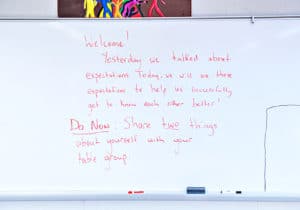 Welcome!
Yesterday we talked about
expectations. Today, we will use these
expectations to help us successfully
get to know each other better!
Do Now: Share two things
about yourself with your
table group